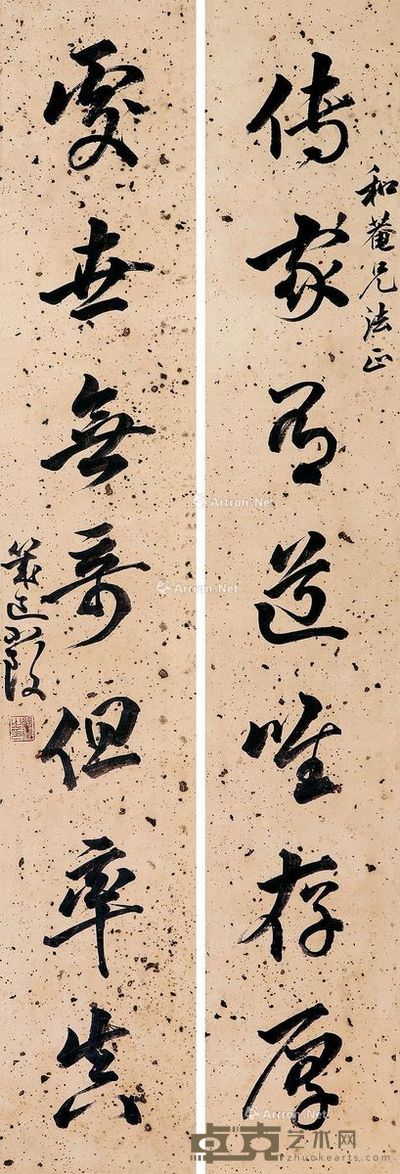 和菴兄法正
傳家有道唯存厚
處世無奇但率真
Artron.Net
Artron.Net
Artron.Net
卓克艺术网
zhuokearts.com